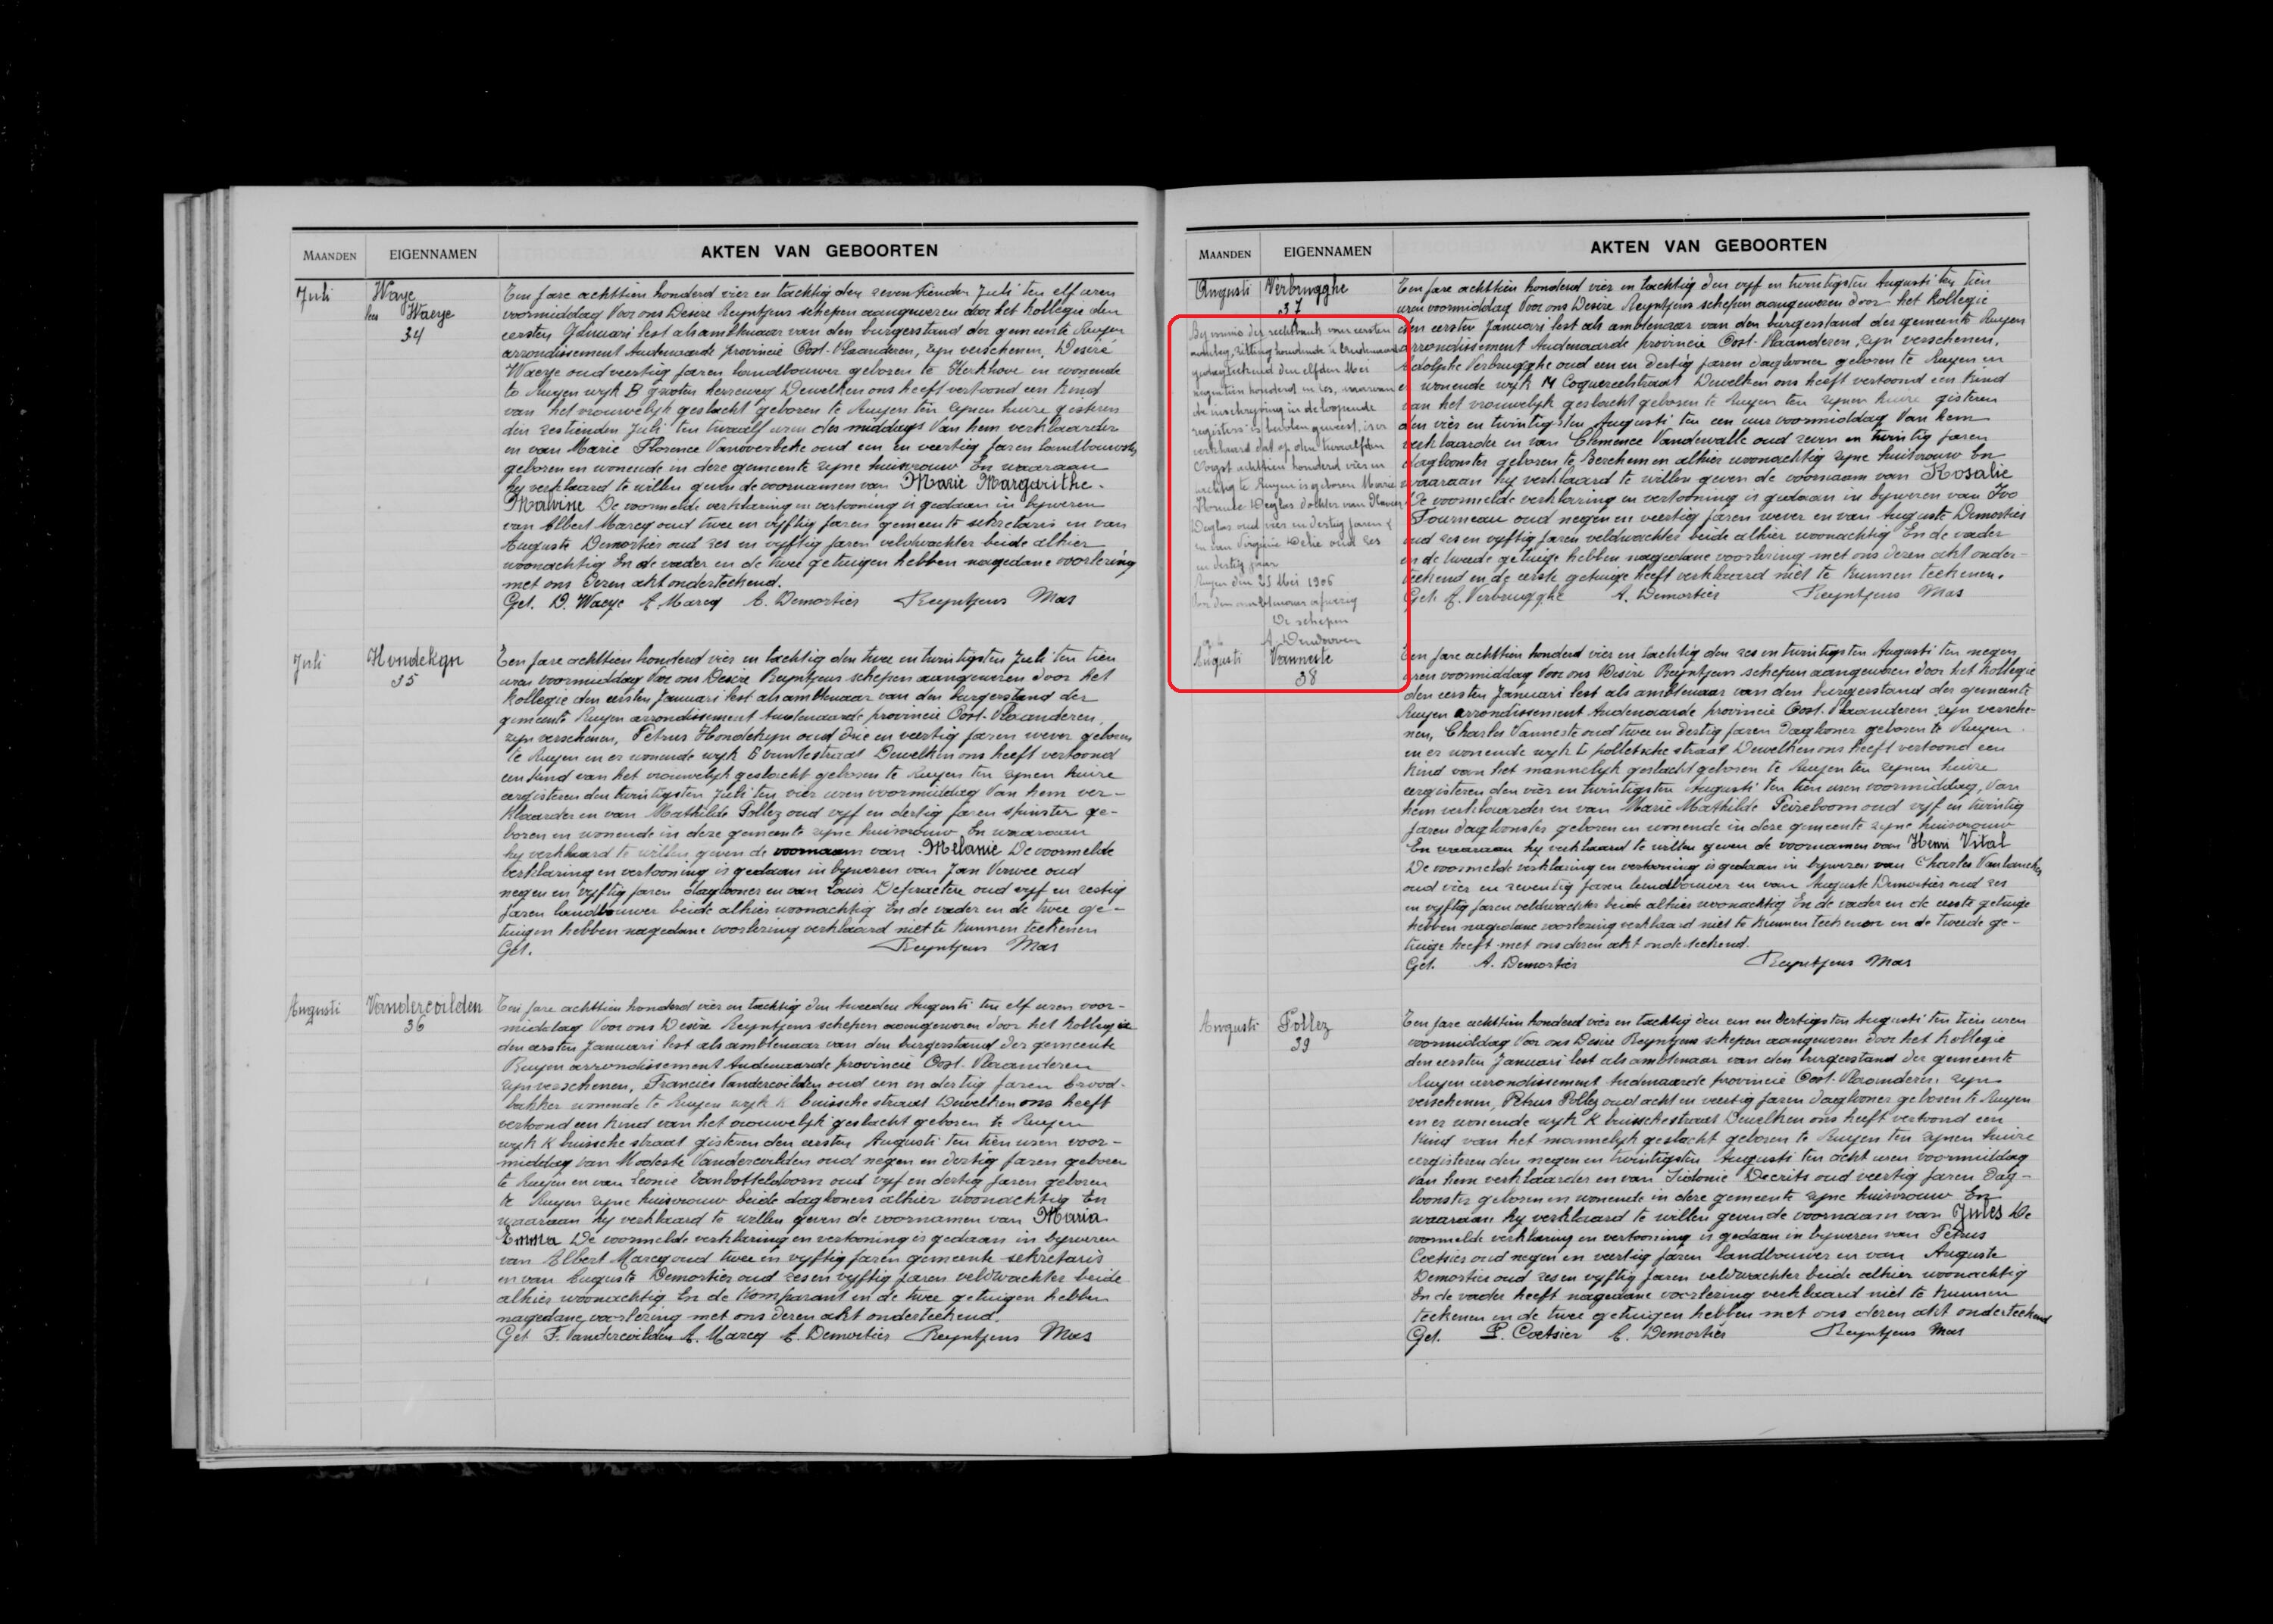 MAANDEN EIGENNAMEN AKTEN VAN GEBOORTEN
Juli Waye
lees Waeye
34
Een jare achttien honderd vier en tachtig den zeventienden Juli ten elf uren
voormiddag Voor ons Desire Reyntjens schepen aangewezen door het Kollegie den
eersten Januari lest als ambtenaar van den burgerstand der gemeente Ruyen
arrondissement Audenaarde provincie Oost-Vlaanderen, zyn verschenen, Desiré
Waeye oud veertig jaren landbouwer geboren te Kerkhove en wonende
te Ruyen wyk B grooten herreweg Dewelken ons heeft vertoond een Kind
van het vrouwelyk geslacht geboren te Ruyen ten zynen huize gisteren
den zestienden Juli ten twaalf uren des middags Van hem verklaarder
en van Marie Florence Vanoverbeke oud een en veertig jaren landbouwster
geboren en wonende in deze gemeente zyne huisvrouw En waaraan
hy verklaard te willen geven de voornamen van Marie Margarithe
Malvine De voormelde verklaring en vertooning is gedaan in bywezen
van Albert Marcq oud twee en vyftig jaren gemeente sekretaris en van
Auguste Demortier oud zes en vyftig jaren veldwachter beide alhier
woonachtig En de vader en de twee getuigen hebben nagedane voorlezing
met ons dezen akt onderteekend.
Get. D. Waeye A. Marcq A. Demortier Reyntjens Mas
Juli Hondekyn
35
Een jare achttien honderd vier en tachtig den twee en twintigsten Juli ten tien
uren voormiddag Voor ons Desire Reyntjens schepen aangewezen door het
Kollegie den eersten Januari lest als ambtenaar van den burgerstand der
gemeente Ruyen arrondissement Audenaarde provincie Oost-Vlaanderen,
zyn verschenen, Petrus Hondekyn oud drie en veertig jaren wever geboren
te Ruyen en er wonende wyk E Dewelken ons heeft vertoond
een Kind van het vrouwelyk geslacht geboren te Ruyen ten zynen huize
eergisteren den twintigsten Juli ten vier uren voormiddag Van hem ver-
klaarder en van Mathilde Pollez oud vyf en dertig jaren spinster ge-
boren en wonende in deze gemeente zyne huisvrouw En waaraan
hy verklaard te willen geven de voornaam van Melanie De voormelde
verklaring en vertooning is gedaan in bywezen van Jan Verwee oud
negen en vyftig jaren dagloner en van Louis Defraetere oud vyf en zestig
jaren landbouwer beide alhier woonachtig En de vader en de twee ge-
tuigen hebben nagedane voorlezing verklaard niet te kunnen teekenen
Get. Reyntjens Mas
Augusti Vandercoilden
36
Een jare achttien honderd vier en tachtig den tweeden Augusti ten elf uren voor-
middag Voor ons Desire Reyntjens schepen aangewezen door het Kollegie
den eersten Januari lest als ambtenaar van den burgerstand der gemeente
Ruyen arrondissement Audenaarde provincie Oost-Vlaanderen
zyn verschenen, Francies Vandercoilden oud een en dertig jaren brood-
bakker wonende te Ruyen wyk K buissche straat Dewelken ons heeft
vertoond een Kind van het vrouwelyk geslacht geboren te Ruyen
wyk K buissche straat gisteren den eersten Augusti ten tien uren voor-
middag van Modeste Vandercoilden oud negen en dertig jaren geboren
te Ruyen en van Leonie Vanbosseldoorn oud vyf en dertig jaren geboren
te Ruyen zyne huisvrouw beide dagloners alhier woonachtig En
waaraan hy verklaard te willen geven de voornamen van Maria
Emma De voormelde verklaring en vertooning is gedaan in bywezen
van Albert Marcq oud twee en vyftig jaren gemeente sekretaris
en van Auguste Demortier oud zes en vyftig jaren veldwachter beide
alhier woonachtig En de Komparant en de twee getuigen hebben
nagedane voorlezing met ons dezen akt onderteekend.
Get F. Vandercoilden A. Marcq A. Demortier Reyntjens Mas
MAANDEN EIGENNAMEN AKTEN VAN GEBOORTEN
Augusti Verbrugghe
37
By vonnis der rechtbank van eersten
aanleg, zitting houdende te Audenaarde
gedagteekend den elfden Mei
negentien honderd en zes, waarvan
de inschryving in de loopende
registers bevolen geweest, is er
verklaard dat op den twaalfden
Oogst achttien honderd vier en
tachtig te Ruyen is geboren Marie
Weytas dochter van
Weytas oud vier en dertig jaren
en van Virginie Delie oud zes
en dertig jaar
Ruyen den 25 Mei 1906
Voor den ambtenaar afwezig
De schepen
A.
Een jare achttien honderd vier en tachtig den vyf en twintigsten Augusti ten tien
uren voormiddag Voor ons Desire Reyntjens schepen aangewezen door het Kollegie
den eersten Januari lest als ambtenaar van den burgerstand der gemeente Ruyen
arrondissement Audenaarde provincie Oost-Vlaanderen, zyn verschenen,
Adolphe Verbrugghe oud een en dertig jaren dagloner geboren te Ruyen en
er wonende wyk M Coquereelstraat Dewelken ons heeft vertoond een Kind
van het vrouwelyk geslacht geboren te Ruyen ten zynen huize gisteren
den vier en twintigsten Augusti ten een uur voormiddag Van hem
verklaarder en van Clemence Vandewalle oud zeven en twintig jaren
dagloonster geboren te Berchem en alhier woonachtig zyne huisvrouw En
waaraan hy verklaard te willen geven de voornaam van Rosalie
De voormelde verklaring en vertooning is gedaan in bywezen van Ivo
Fourneau oud negen en veertig jaren wever en van Auguste Demortier
oud zes en vyftig jaren veldwachter beide alhier woonachtig En de vader
en de tweede getuige hebben nagedane voorlezing met ons dezen akt onder-
teekend en de eerste getuige heeft verklaard niet te kunnen teekenen.
Get. A. Verbrugghe A. Demortier Reyntjens Mas
Augusti Vanneste
38
Een jare achttien honderd vier en tachtig den zes en twintigsten Augusti ten negen
uren voormiddag Voor ons Désiré Reyntjens schepen aangewezen door het Kollegie
den eersten Januari lest als ambtenaar van den burgerstand der gemeente
Ruyen arrondissement Audenaarde provincie Oost-Vlaanderen zyn versche-
nen, Charles Vanneste oud twee en dertig jaren dagloner geboren te Ruyen
en er wonende wyk straat Dewelken ons heeft vertoond een
Kind van het mannelyk geslacht geboren te Ruyen ten zynen huize
eergisteren den vier en twintigsten Augusti ten tien uren voormiddag, Van
hem verklaarder en van Marie Mathilde Peireboom oud vyf en twintig
jaren dagloonster geboren en wonende in deze gemeente zyne huisvrouw
En waaraan hy verklaard te willen geven de voornamen van Henri Vital
De voormelde verklaring en vertooning is gedaan in bywezen van Charles
oud vier en zeventig jaren landbouwer en van Auguste Demortier oud zes
en vyftig jaren veldwachter beide alhier woonachtig En de vader en de eerste getuige
hebben nagedane voorlezing verklaard niet te kunnen teekenen en de tweede ge-
tuige heeft met ons dezen akt onderteekend.
Get. A. Demortier Reyntjens Mas
Augusti Pollez
39
Een jare achttien honderd vier en tachtig den een en dertigsten Augusti ten tien uren
voormiddag Voor ons Desire Reyntjens schepen aangewezen door het Kollegie
den eersten Januari lest als ambtenaar van den burgerstand der gemeente
Ruyen arrondissement Audenaarde provincie Oost-Vlaanderen, zyn
verschenen, Petrus Pollez oud acht en veertig jaren dagloner geboren te Ruyen
en er wonende wyk K buisschestraat Dewelken ons heeft vertoond een
Kind van het mannelyk geslacht geboren te Ruyen ten zynen huize
eergisteren den negen en twintigsten Augusti ten acht uren voormiddag
Van hem verklaarder en van Sidonie Decrits oud veertig jaren dag-
loonster geboren en wonende in deze gemeente zyne huisvrouw En
waaraan hy verklaard te willen geven de voornaam van Jules De
voormelde verklaring en vertooning is gedaan in bywezen van Petrus
Coetsier oud negen en veertig jaren landbouwer en van Auguste
Demortier oud zes en vyftig jaren veldwachter beide alhier woonachtig
En de vader heeft nagedane voorlezing verklaard niet te kunnen
teekenen en de twee getuigen hebben met ons dezen akt onderteekend
Get. P. Coetsier A. Demortier Reyntjens Mas